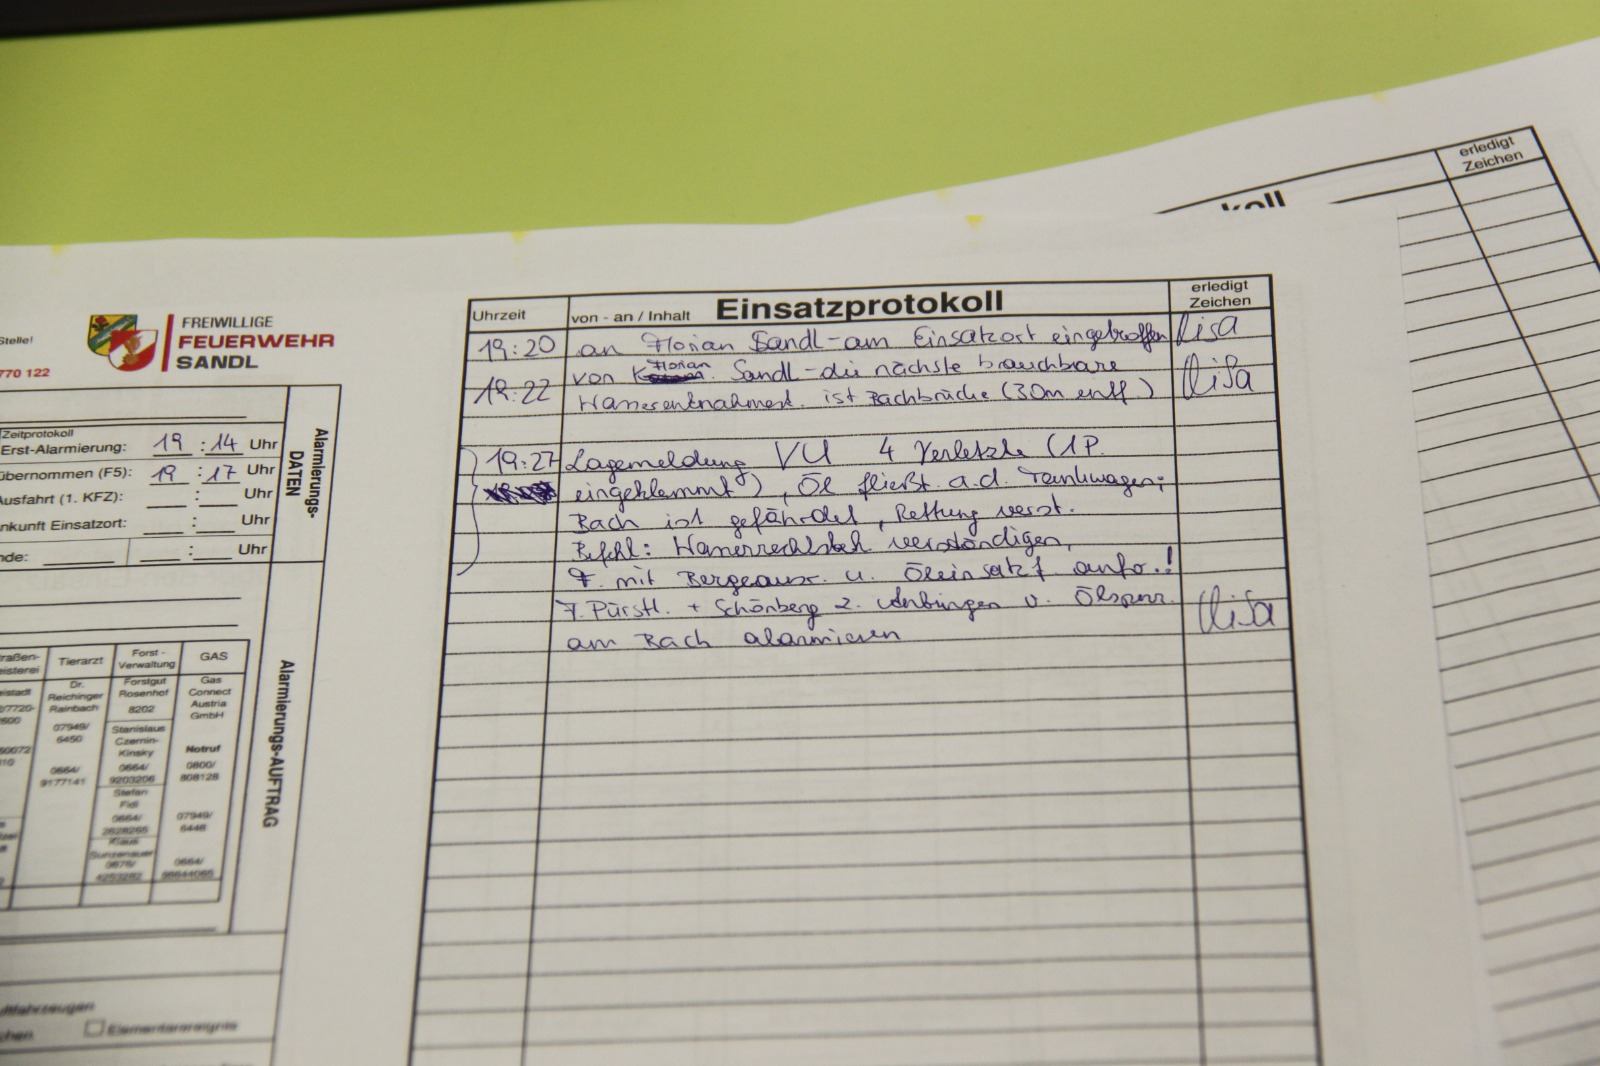 Stelle!
770 122
FREIWILLIGE
FEUERWEHR
SANDL
Zeitprotokoll
Erst-Alarmierung: 19 : 14 Uhr
übernommen (F5): 19 : 17 Uhr
Ausfahrt (1. KFZ): : Uhr
nkunft Einsatzort: : Uhr
nde: : Uhr
Alarmierungs-
DATEN
Alarmierungs-AUFTRAG
raßen-
eisterei
Tierarzt
Dr.
Reichinger
Rainbach
07949/
6450
0664/
9177141
Forst -
Verwaltung
Forstgut
Rosenhof
8202
Stanislaus
Czernin-
Kinsky
0664/
9203206
Stefan
Fidl
0664/
2628265
Klaus
0676/
4253282
GAS
Gas
Connect
Austria
GmbH
Notruf
0800/
808128
07949/
6448
0664/
Elementarereignis
Uhrzeit von - an / Inhalt Einsatzprotokoll erledigt
Zeichen
19:20 an Florian Sandl - am Einsatzort eingetroffen Lisa
19:22 von Florian Sandl - die nächste brauchbare Lisa
Wasserentnahmest. ist Bachbrücke (30m entf.)
19:27 Lagemeldung VU 4 Verletzte (1P.
eingeklemmt), Öl fließt a.d. Tankwagen;
Bach ist gefährdet, Rettung verst.
Befehl: Wasserrechtsbeh. verständigen,
F. mit Bergeausr. u. Öleinsatzf anfo.!
F. Pürstl. + Schönberg z. Anbringen v. Ölsperr. Lisa
am Bach alarmieren
koll
erledigt
Zeichen